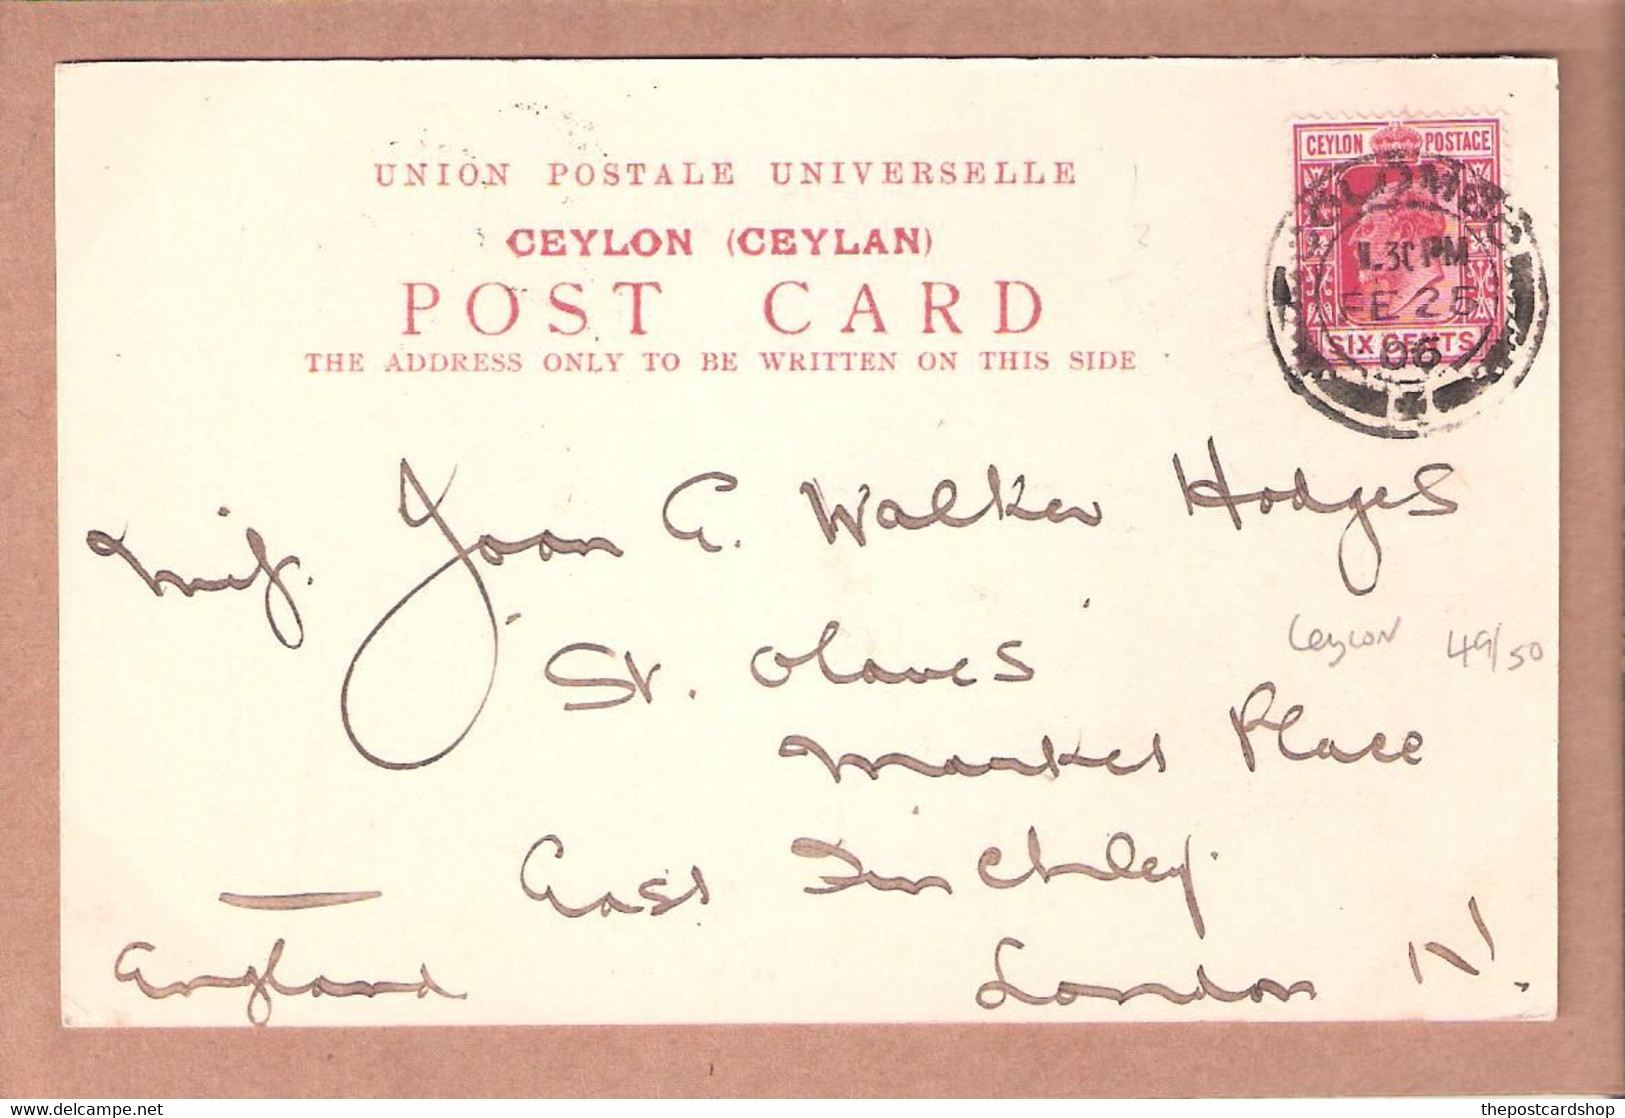 UNION POSTALE UNIVERSELLE
CEYLON (CEYLAN)
POST CARD
THE ADDRESS ONLY TO BE WRITTEN ON THIS SIDE
CEYLON POSTAGE
SIX CENTS
COLOMBO
1.30 PM
FE 25
06
Miss. Joan E. Walker Hodges
St. Olaves
Market Place
East Finchley
London N.
England
Ceylon 49/50
delcampe.net
thepostcardshop